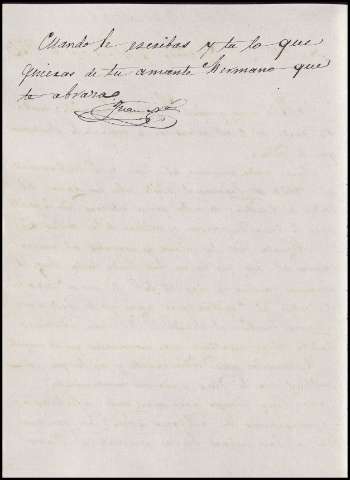 Cuando le escribas y tu lo que
quieras de tu amante hermano que
te abraza
Juan José